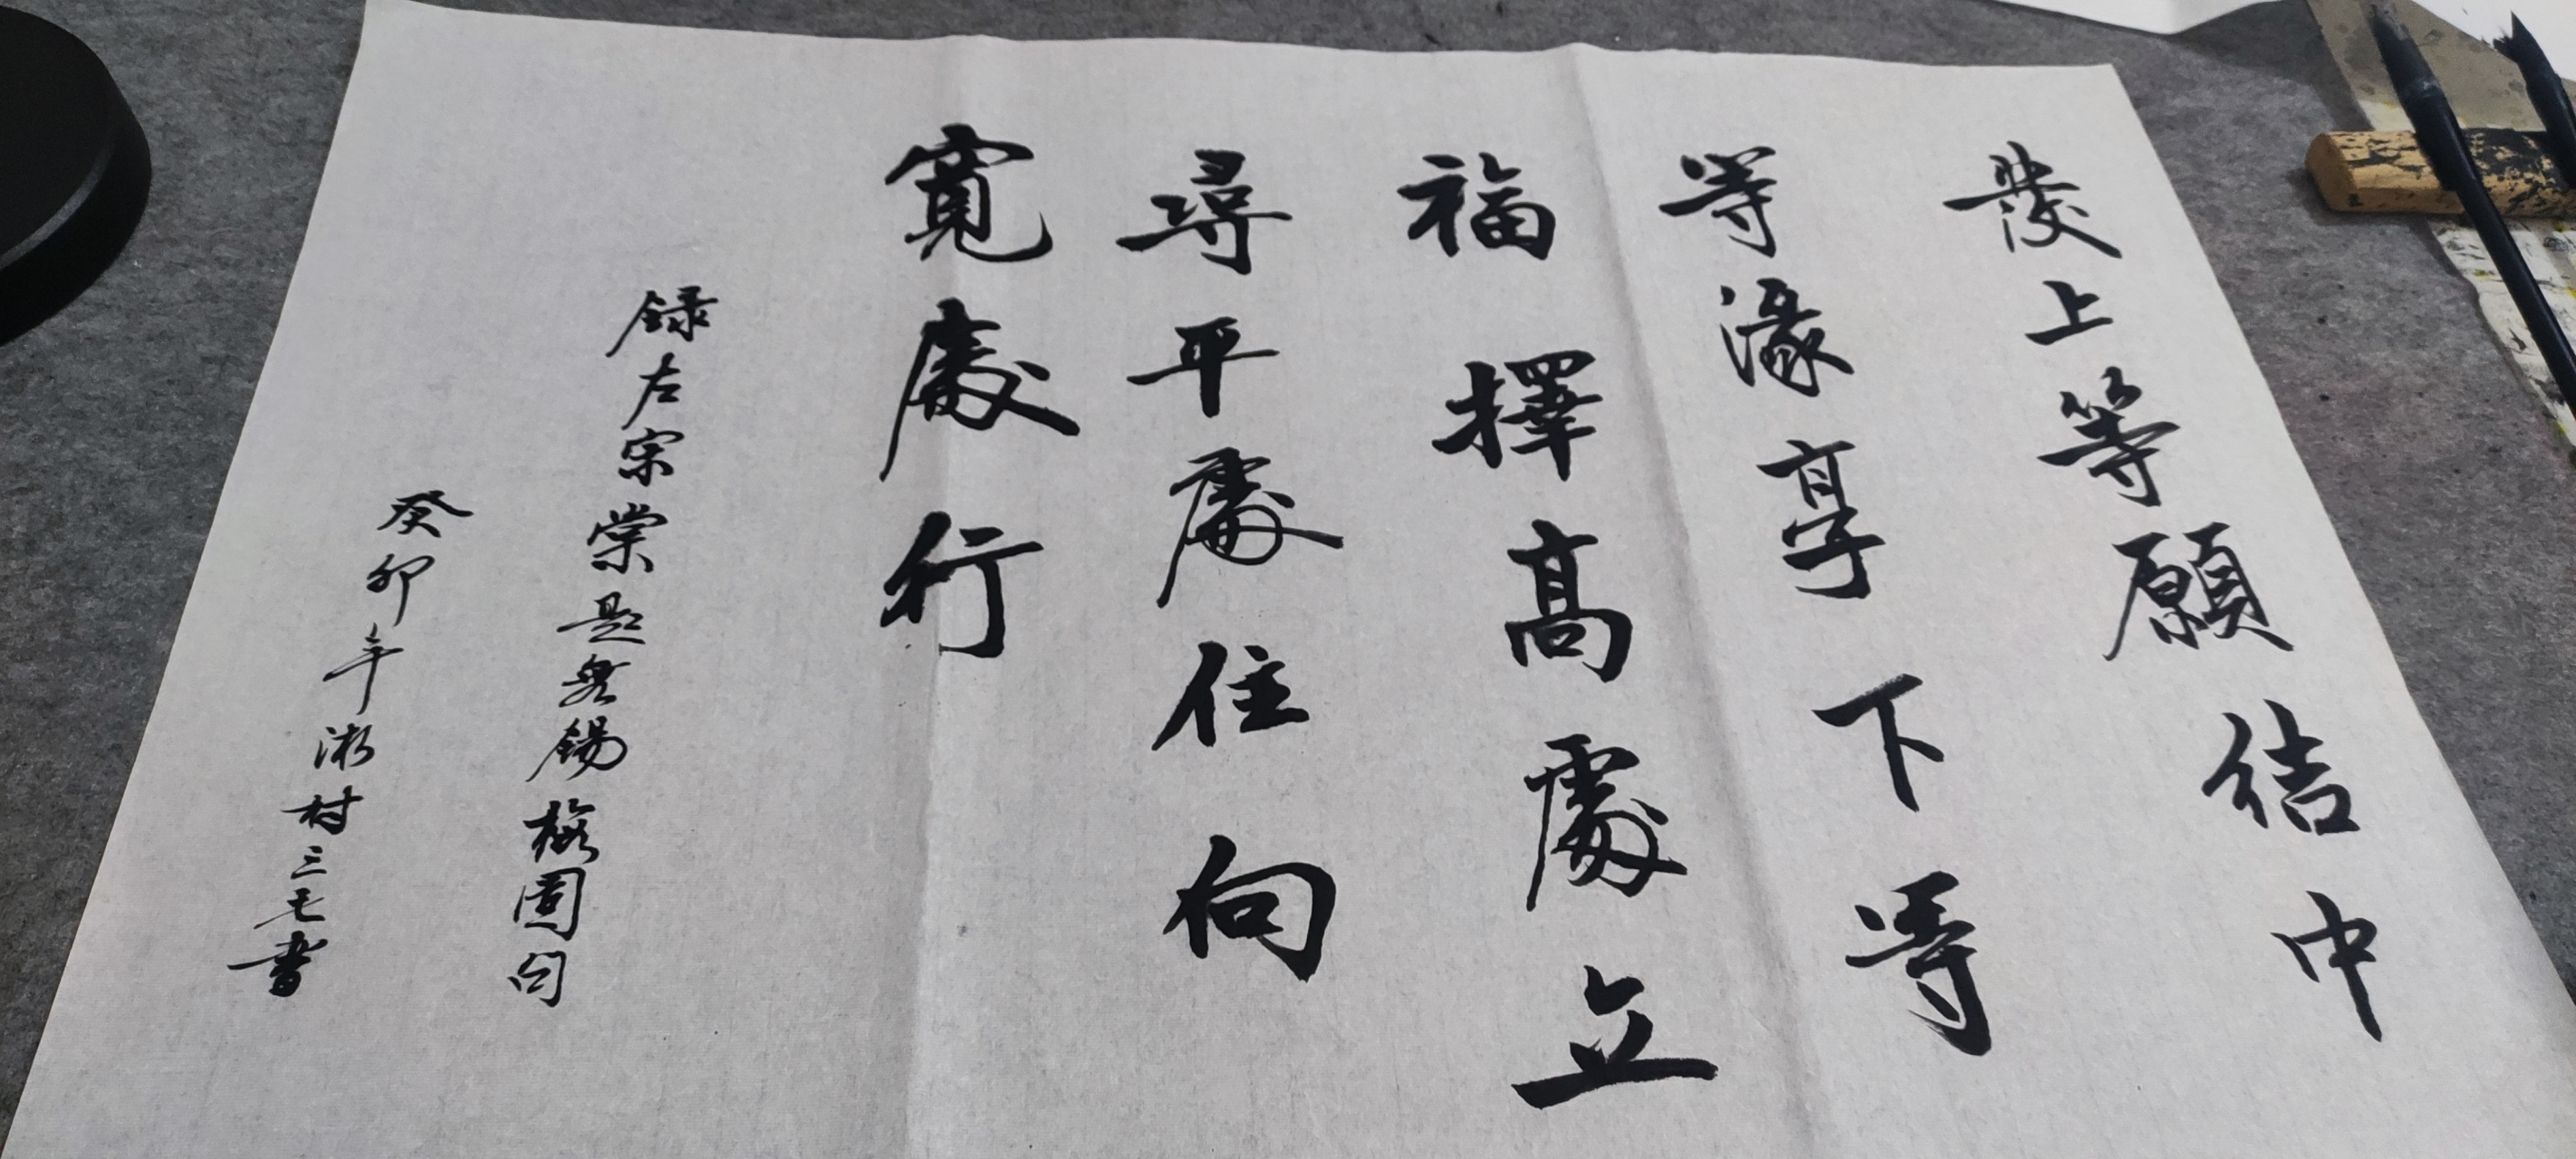 發上等願結中
等緣享下等
福擇高處立
尋平處住向
寬處行
録左宗棠題無錫梅園句
癸卯年淞村三毛書